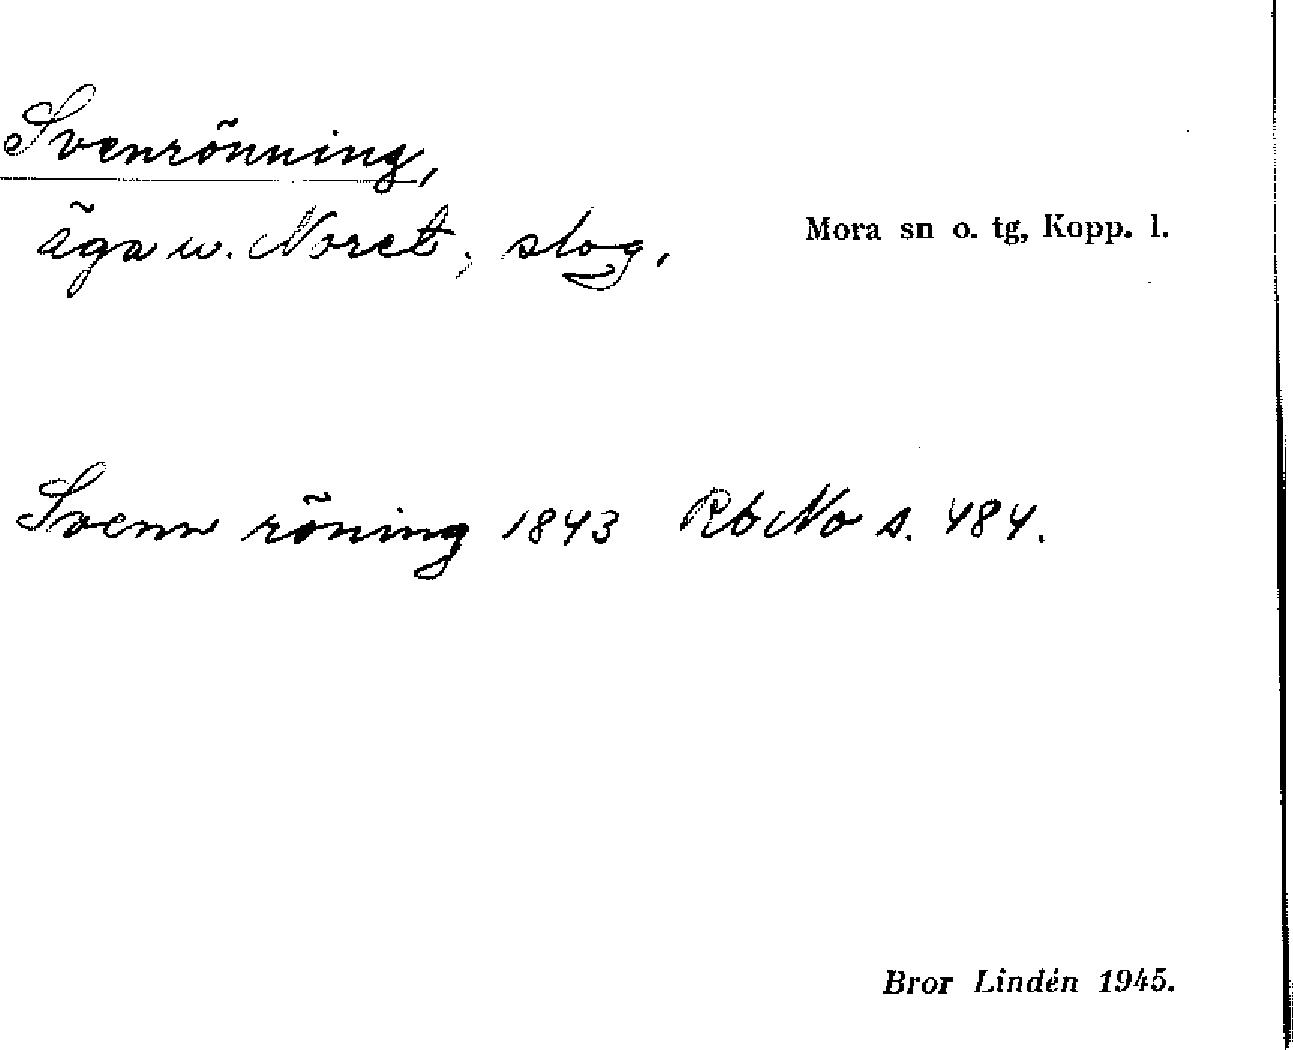 Svenrönning,
äga u. Noret, slog.
Mora sn o. tg, Kopp. l.
Svenn röning 1843 Rb No s. 484.
Bror Lindén 1945.